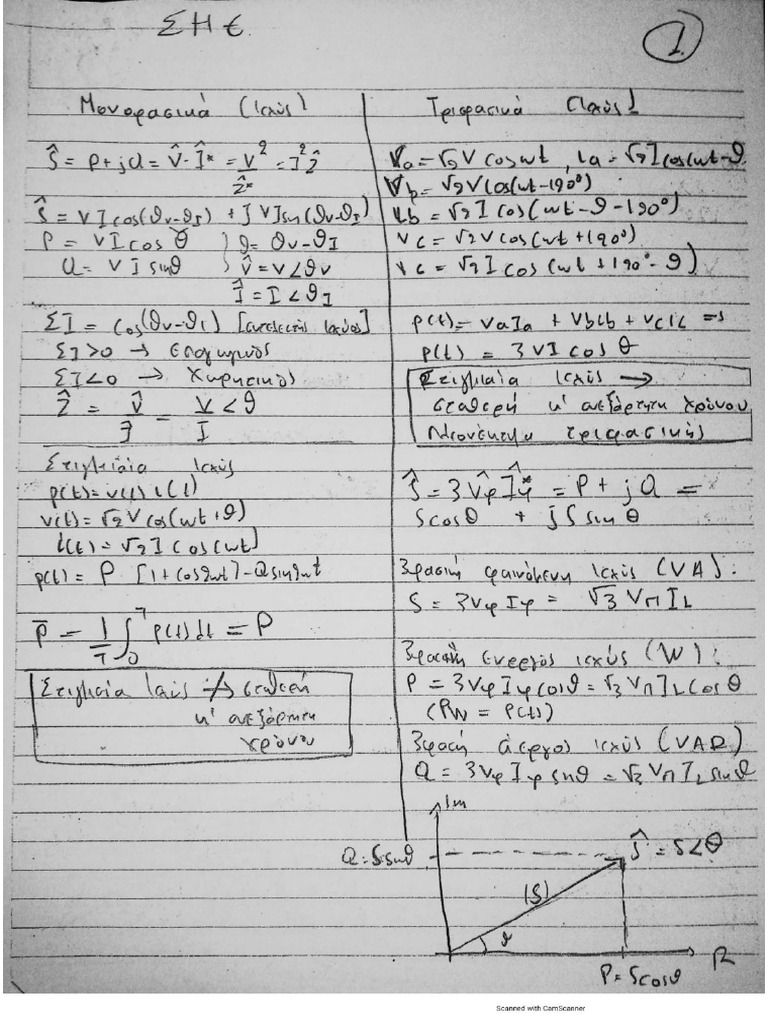 ΣΗΕ
1.
Μονοφασικά (Ισχύς)
Ŝ = P + jQ = V̂·Î* = V²/Ẑ* = I²Ẑ
Ŝ = VIcos(θv-θI) + jVIsin(θv-θI)
P = VIcosθ } θ = θv-θI
Q = VIsinθ } V̂ = V∠θv
Î = I∠θI
ΣΙ = cos(θv-θι) [συντελεστής Ισχύος]
ΣΙ>0 → Επαγωγικός
ΣΙ<0 → Χωρητικός
Ẑ = V̂/Î = V∠θ/I
Στιγμιαία Ισχύς
p(t) = v(t) ι(t)
v(t) = √2 V cos(ωt+θ)
i(t) = √2 I cos(ωt)
p(t) = P [1+cos2ωt] - Q sin2ωt
P̄ = 1/T ∫₀ᵀ p(t)dt = P
Στιγμιαία Ισχύς ↛ σταθερή
κ' ανεξάρτητη
χρόνου
Τριφασικά (Ισχύς)
Va = √2 V cosωt, ιa = √2 I cos(ωt-θ)
Vb = √2 V cos(ωt-120°)
ιb = √2 I cos(ωt-θ-120°)
vc = √2 V cos(ωt+120°)
ιc = √2 I cos(ωt+120°-θ)
p(t) = vaIa + Vbιb + vcιc ⇒
p(t) = 3VI cosθ
Στιγμιαία Ισχύς →
σταθερή κ' ανεξάρτητη χρόνου
Πλεονέκτημα τριφασικής
Ŝ = 3V̂φ Îφ* = P + jQ =
S cosθ + jS sinθ
3φασική φαινόμενη Ισχύς (VA):
S = 3VφIφ = √3 VπIL
3φασική ενεργός ισχύς (W):
P = 3VφIφcosθ = √3 VπILcosθ
(PW = P(t))
3φασική άεργος Ισχύς (VAR)
Q = 3VφIφsinθ = √3 VπILsinθ
Im
Q = S·sinθ
Ŝ = S∠θ
|S|
θ
R
P = Scosθ
Scanned with CamScanner